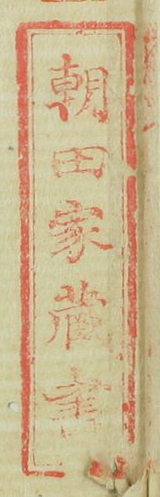 朝田家蔵書